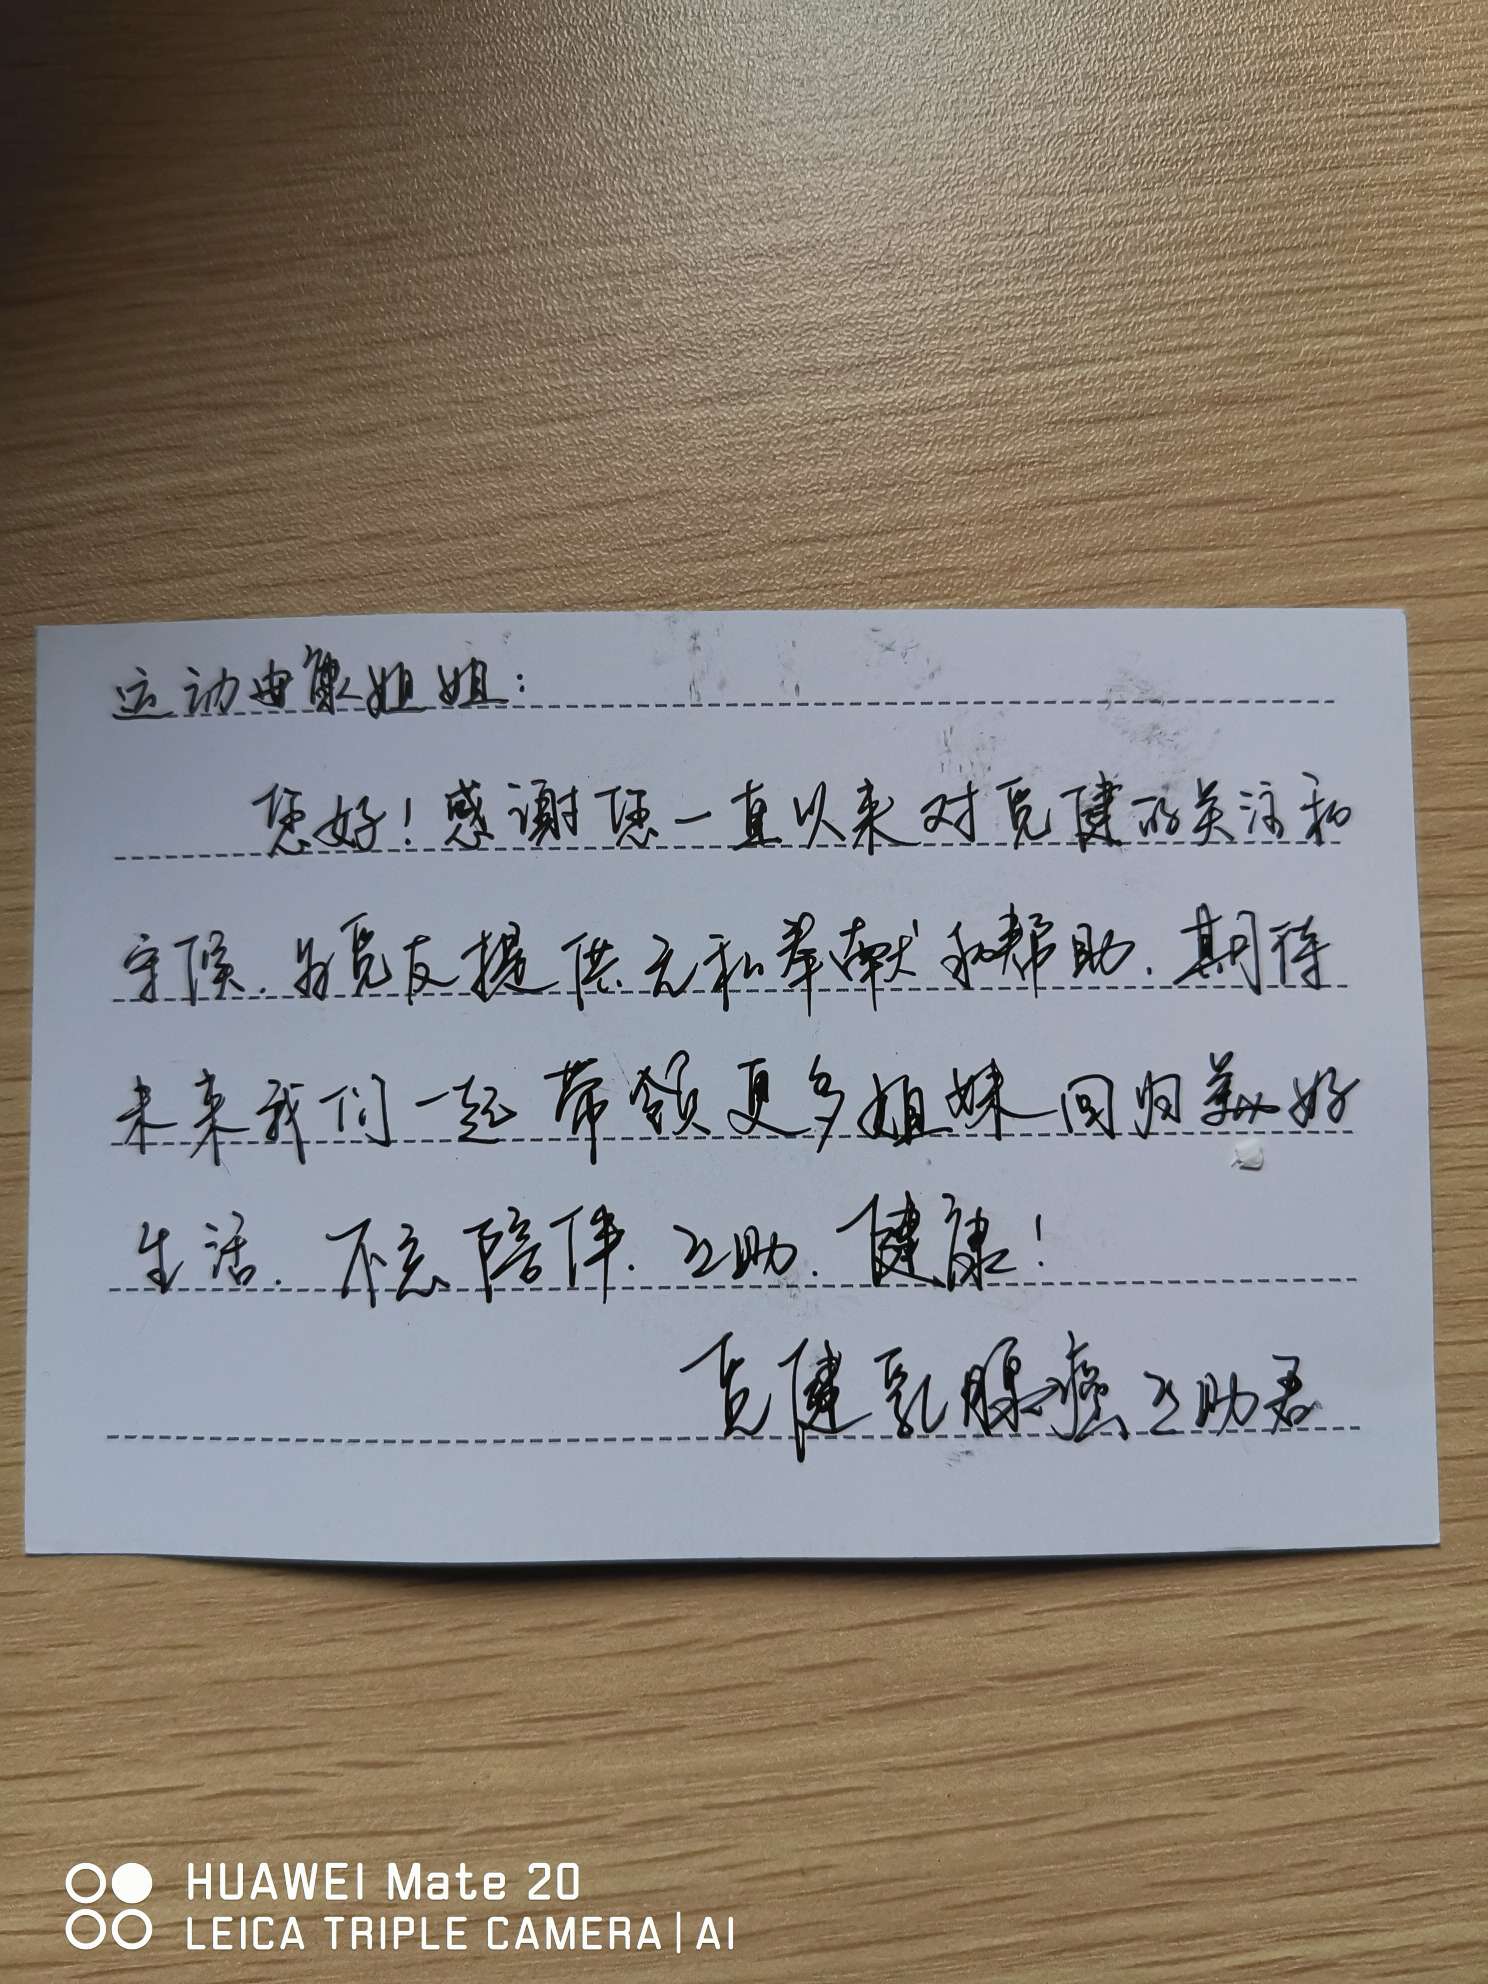 运动由您姐姐：
您好！感谢您一直以来对觅健的关注和
守候.为觅友提供无私奉献和帮助.期待
未来我们一起带领更多姐妹回归美好
生活.不忘陪伴.互助.健康！
觅健乳腺癌互助君
HUAWEI Mate 20
LEICA TRIPLE CAMERA | AI